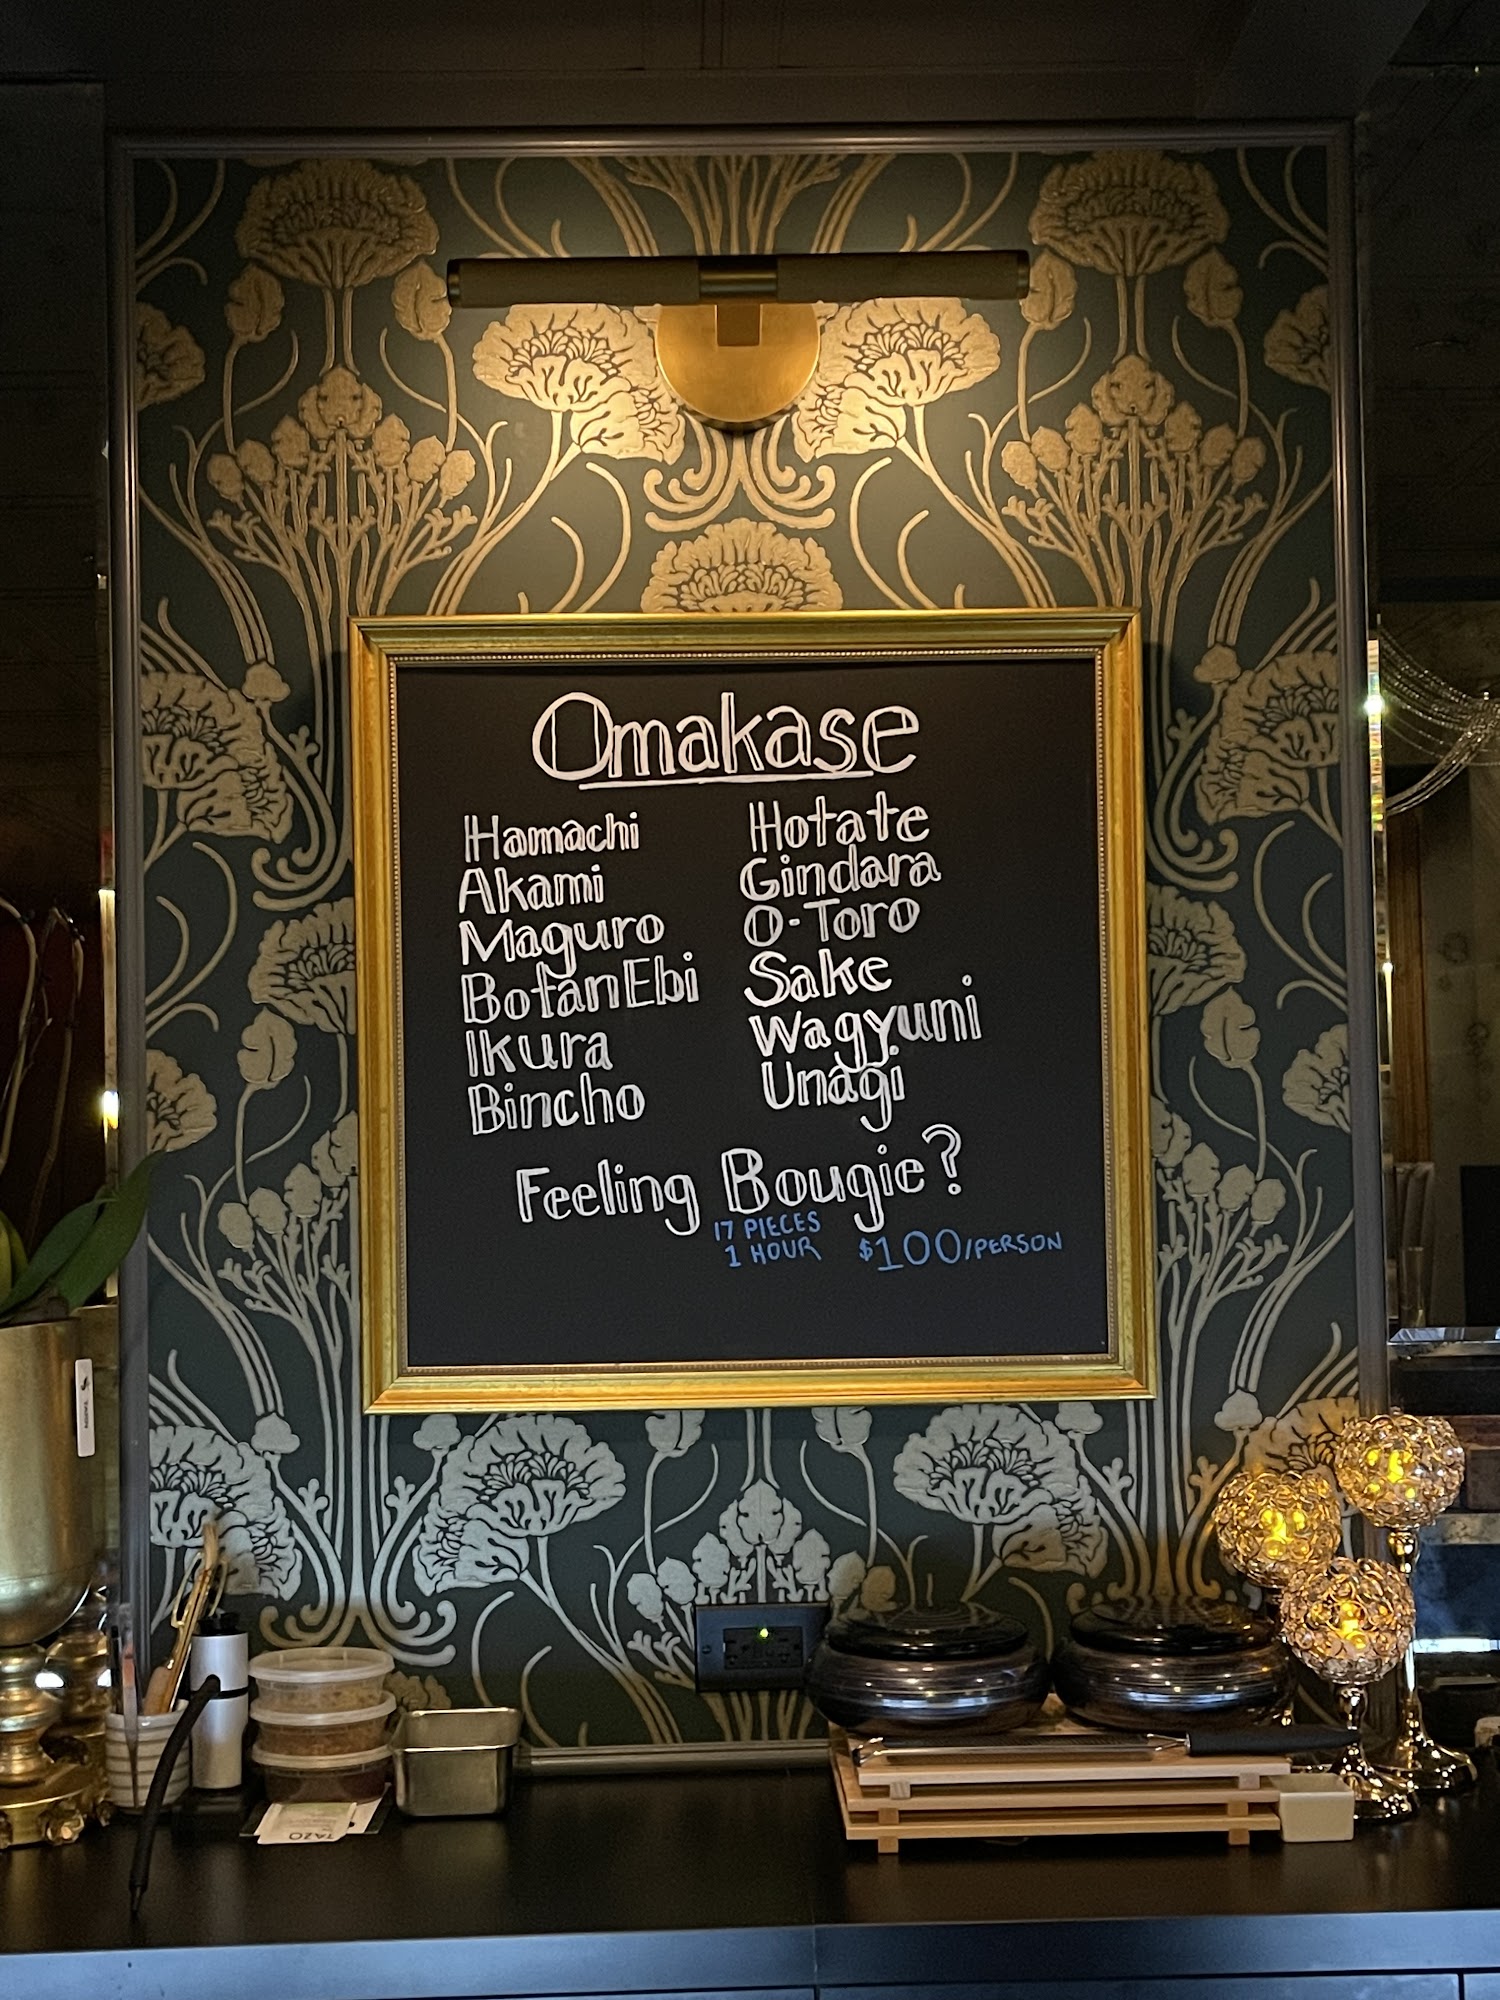 Omakase
Hamachi
Akami
Maguro
Botan Ebi
Ikura
Bincho
Hotate
Gindara
O-Toro
Sake
Wagyuni
Unagi
Feeling Bougie?
17 PIECES
1 HOUR
$100/PERSON
TAZO